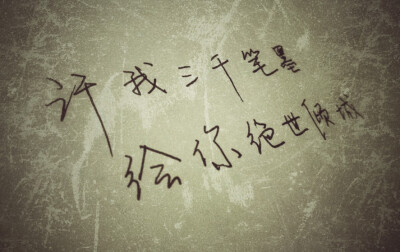 许我三千笔墨
绘你绝世倾城